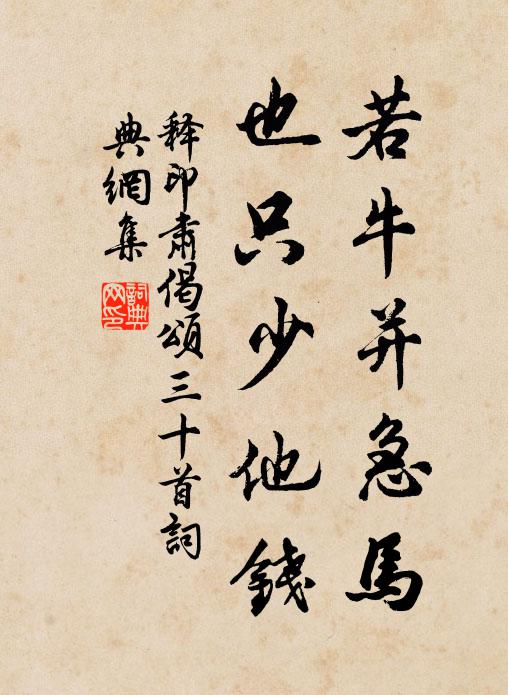 若牛并急馬
也只少他錢
釋印肅偈頌三十首詞
典網集
詞典
网印